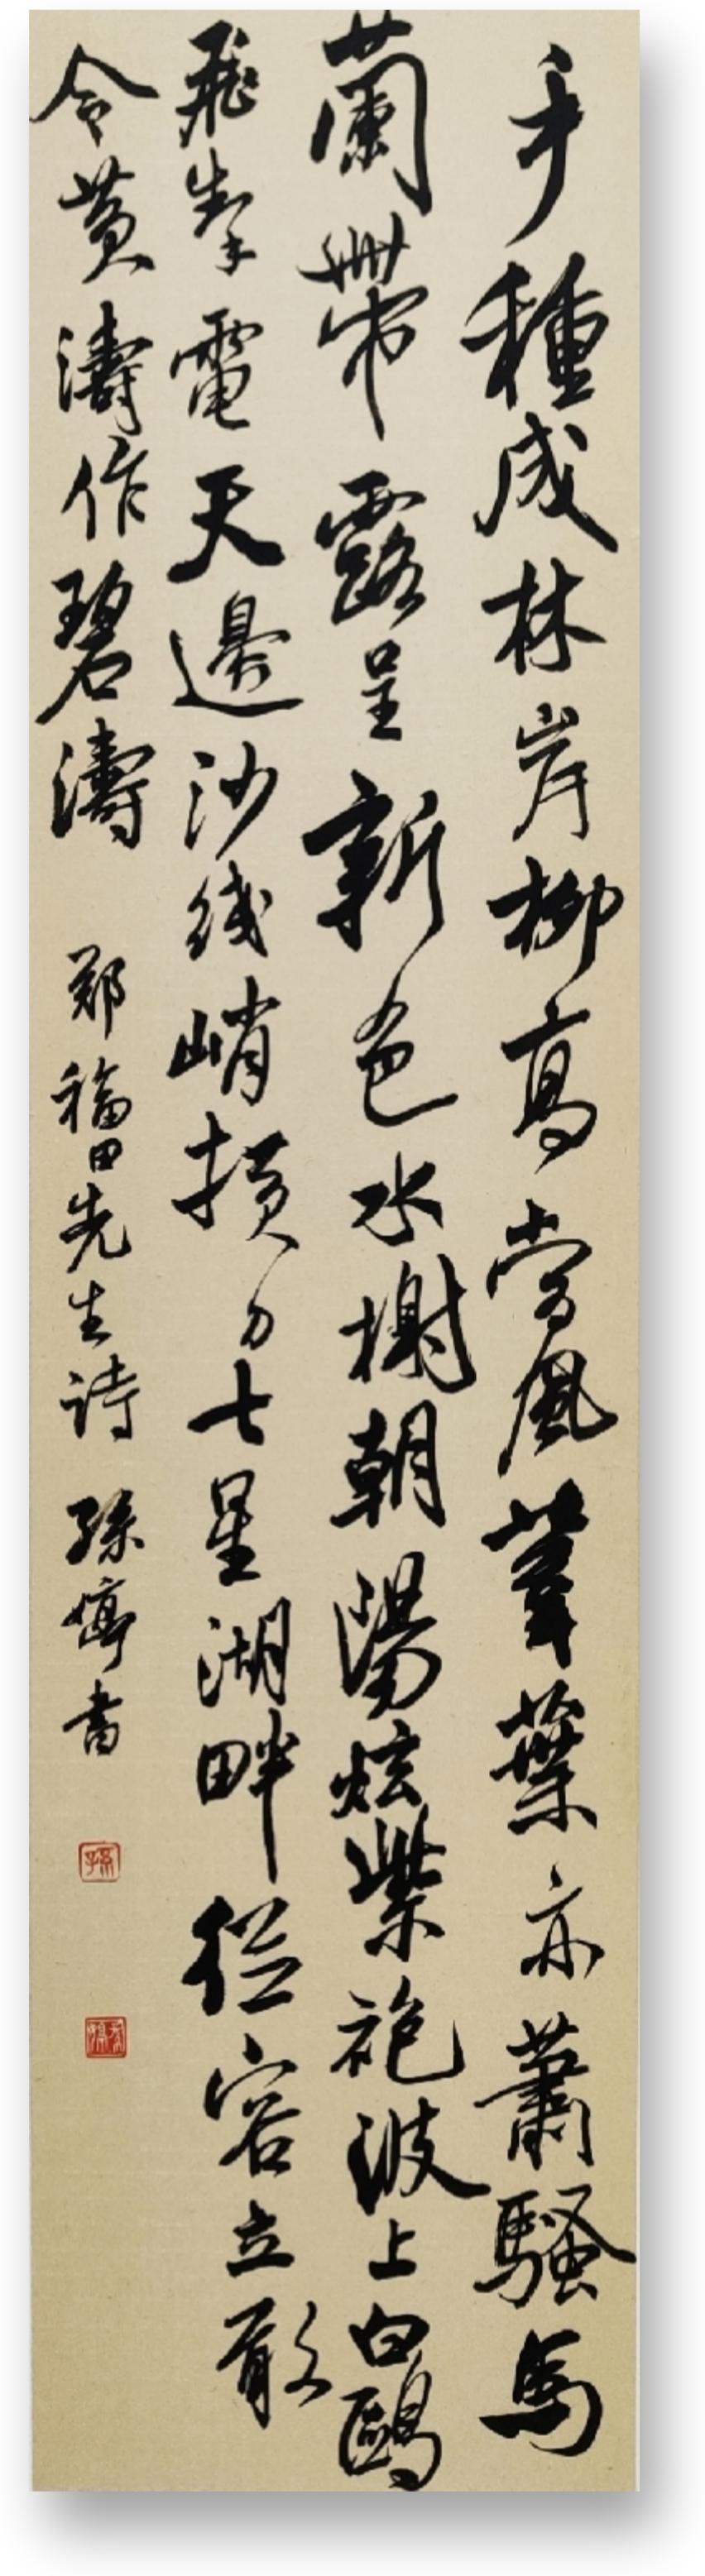 手種成林岸柳高當風葦葉亦蕭騷馬
蘭帶露呈新色水榭朝陽炫紫袍波上白鷗
飛掣電天邊沙线峭横刀七星湖畔從容立敢
令黄濤作碧濤 郑福田先生诗 孫婷書
孫